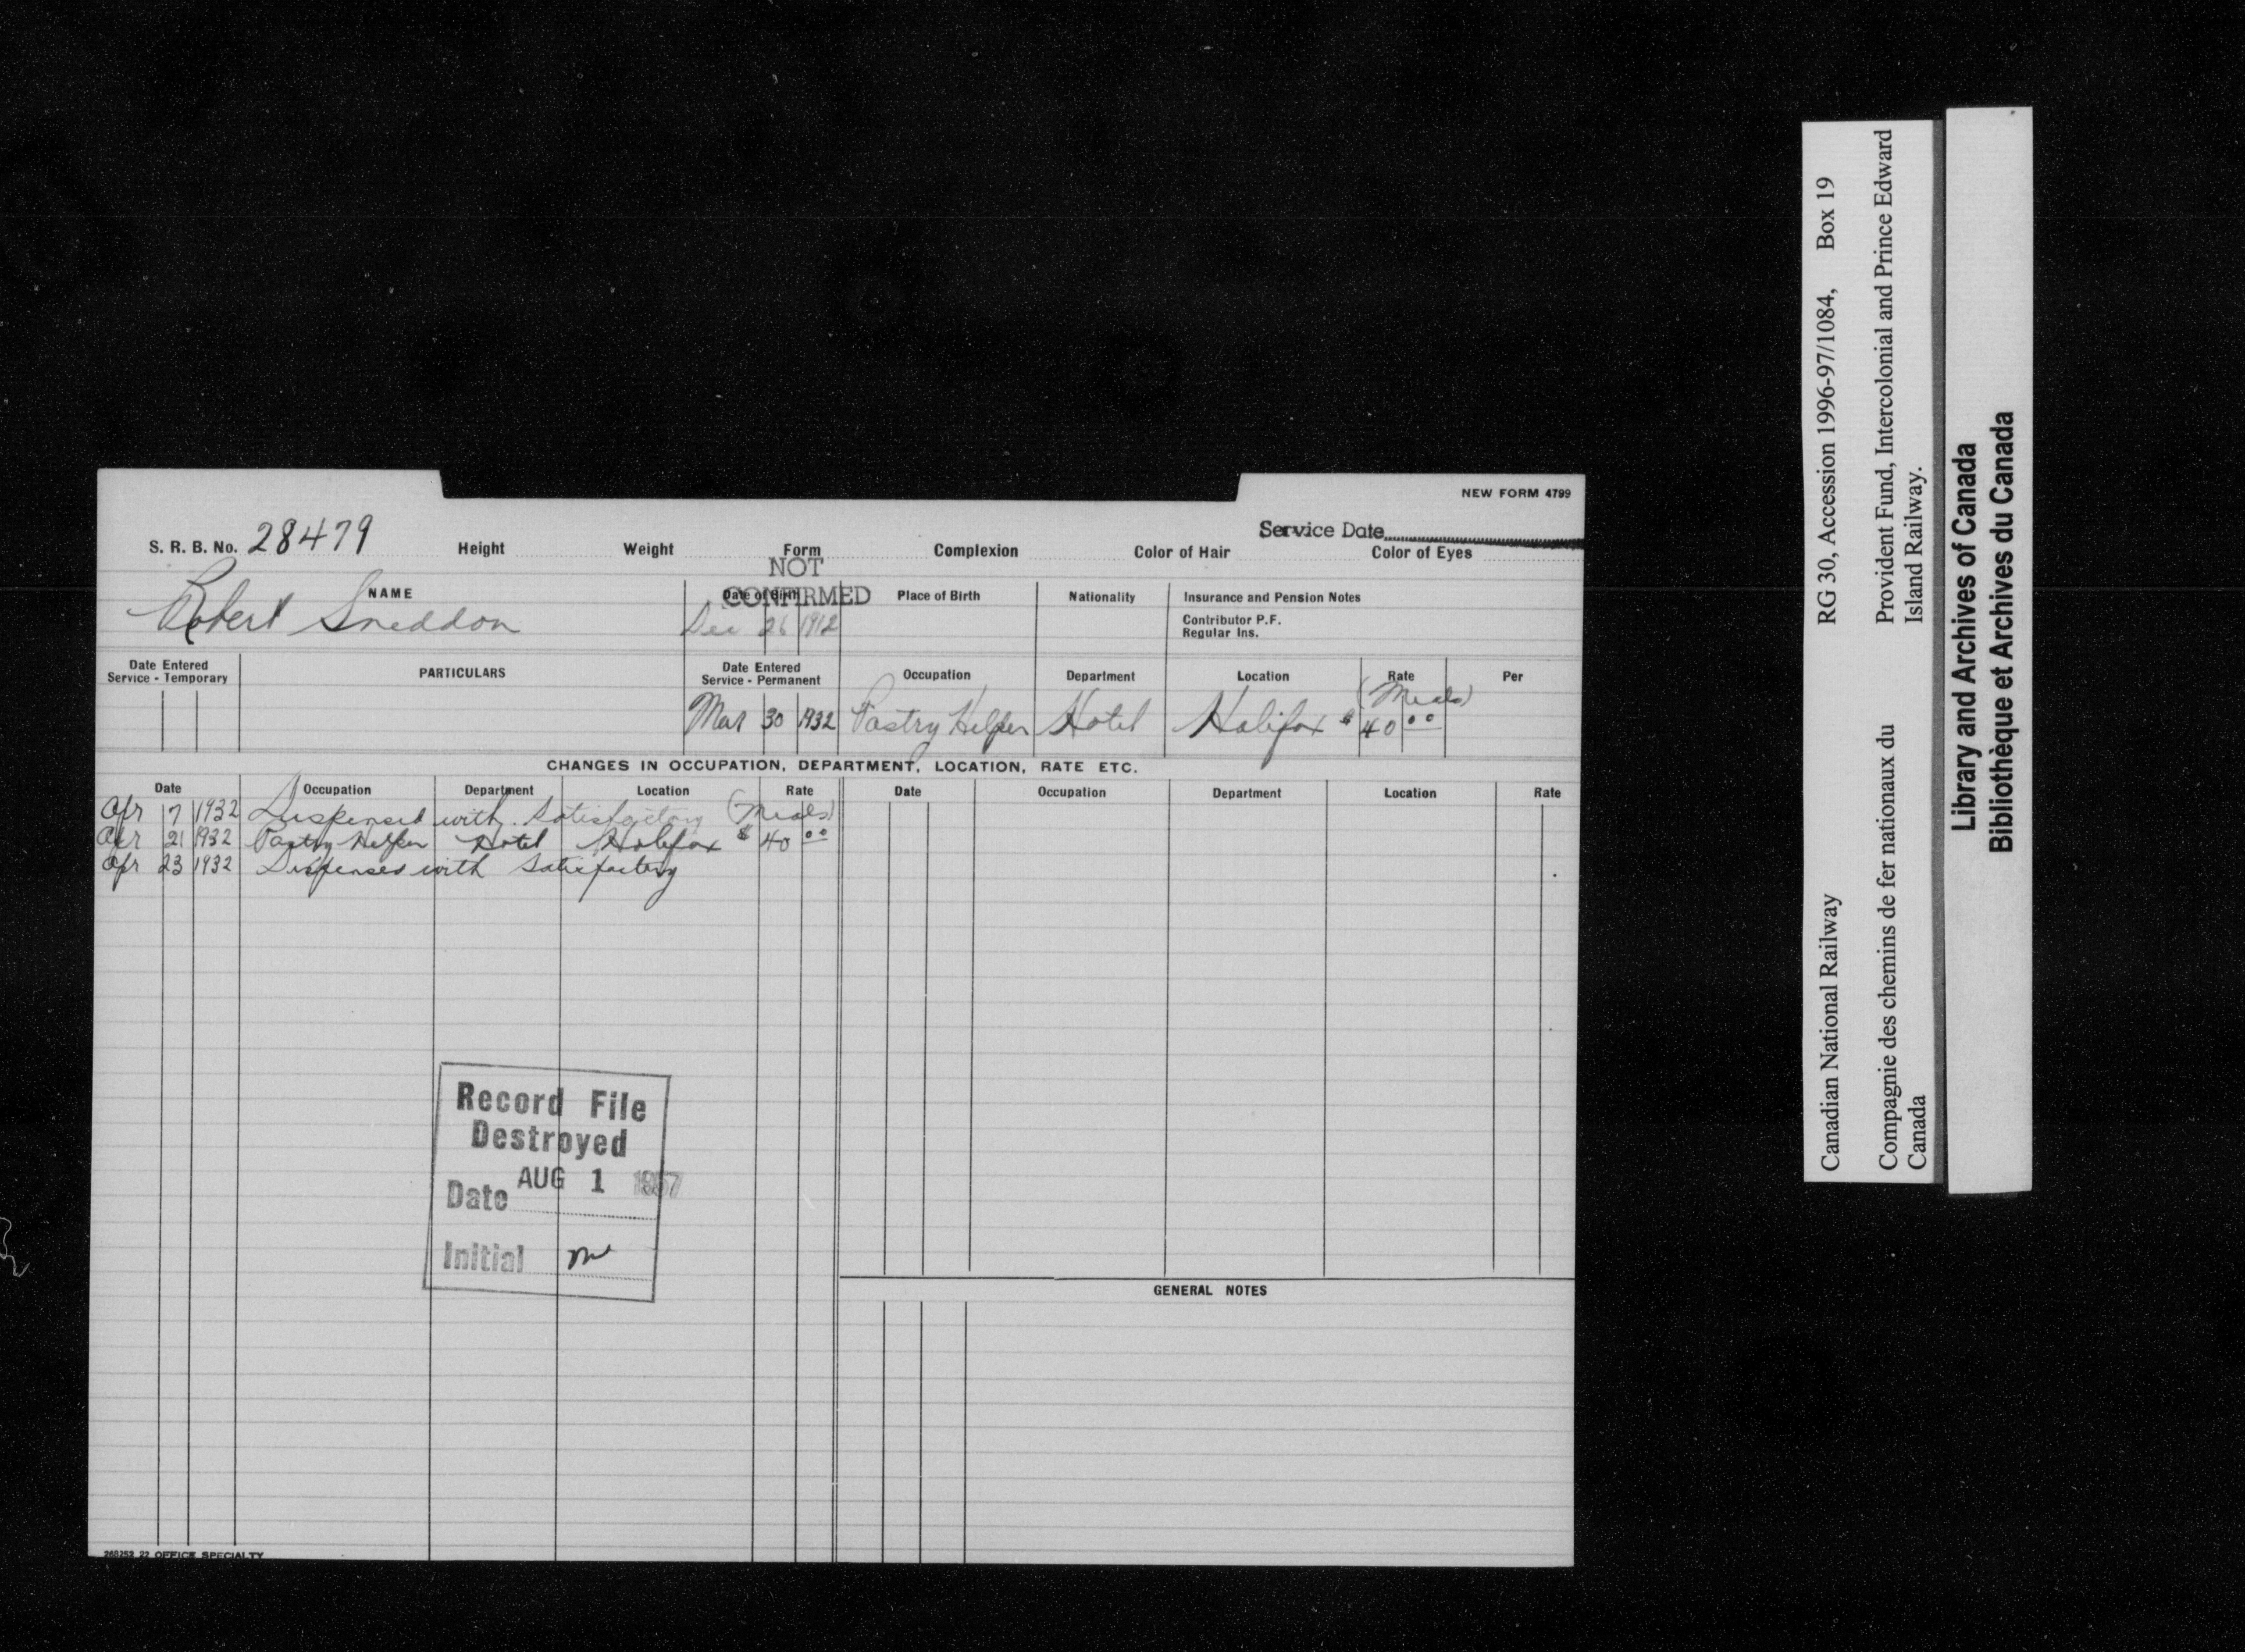 NEW FORM 4799
Service Date
S. R. B. No. 28479 Height Weight Form Complexion Color of Hair Color of Eyes
NOT
CONFIRMED
NAME Date of Birth Place of Birth Nationality Insurance and Pension Notes
Robert Sneddon Dec 26 1912 Contributor P.F.
Regular Ins.
Date Entered Service - Temporary PARTICULARS Date Entered Service - Permanent Occupation Department Location Rate Per
(Meals)
Mar 30 1932 Pastry Helper Hotel Halifax $ 40 00
CHANGES IN OCCUPATION, DEPARTMENT, LOCATION, RATE ETC.
Date Occupation Department Location Rate Date Occupation Department Location Rate
Apr 7 1932 Dispensed with. Satisfactory (Meals)
Apr 21 1932 Pastry Helper Hotel Halifax $ 40 00
Apr 23 1932 Dispensed with Satisfactory
Record File
Destroyed
Date AUG 1 1957
Initial
GENERAL NOTES
22 OFFICE SPECIALTY
Canadian National Railway RG 30, Accession 1996-97/1084, Box 19
Compagnie des chemins de fer nationaux du Provident Fund, Intercolonial and Prince Edward
Canada Island Railway.
Library and Archives of Canada
Bibliothèque et Archives du Canada